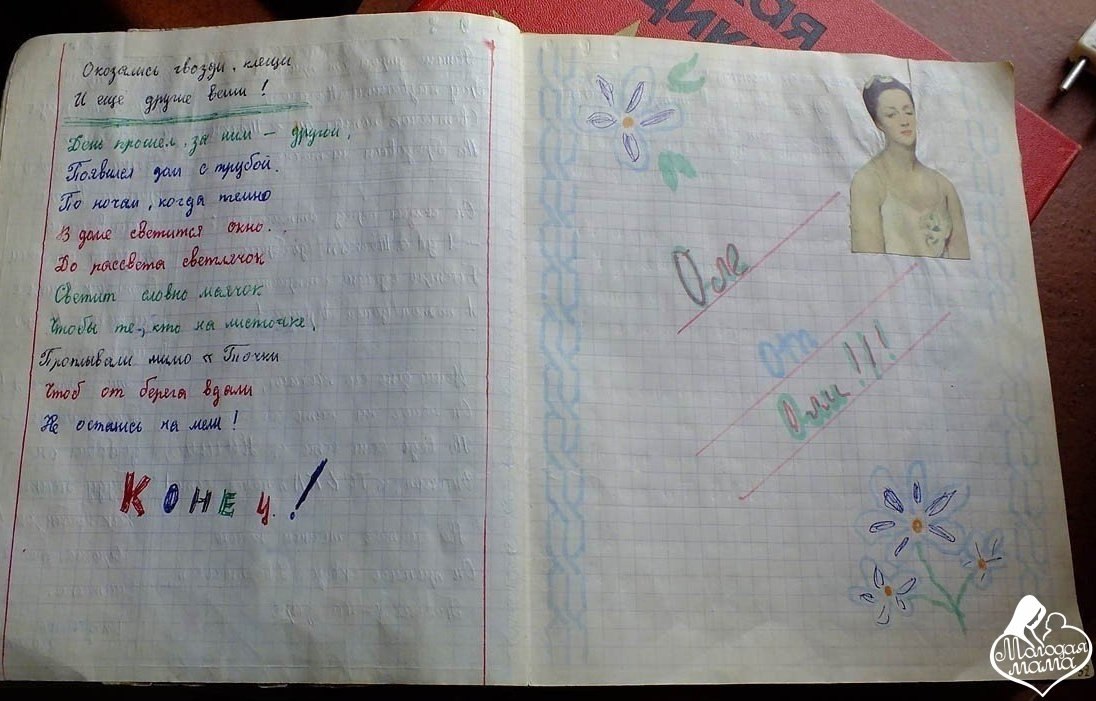 Оказались гвозди, клещи
И ещё другие вещи!
День прошел, за ним – другой,
Появился дом с трубой.
По ночам, когда темно
В доме светится окно..
До рассвета светлячок
Светит словно маячок
Чтобы те, кто на листочке,
Проплывали мимо « Точки
Чтоб от берега вдали
Не остались на мели!
КОНЕЦ.!
Оле
от
Оли!!!
Молодая
мама